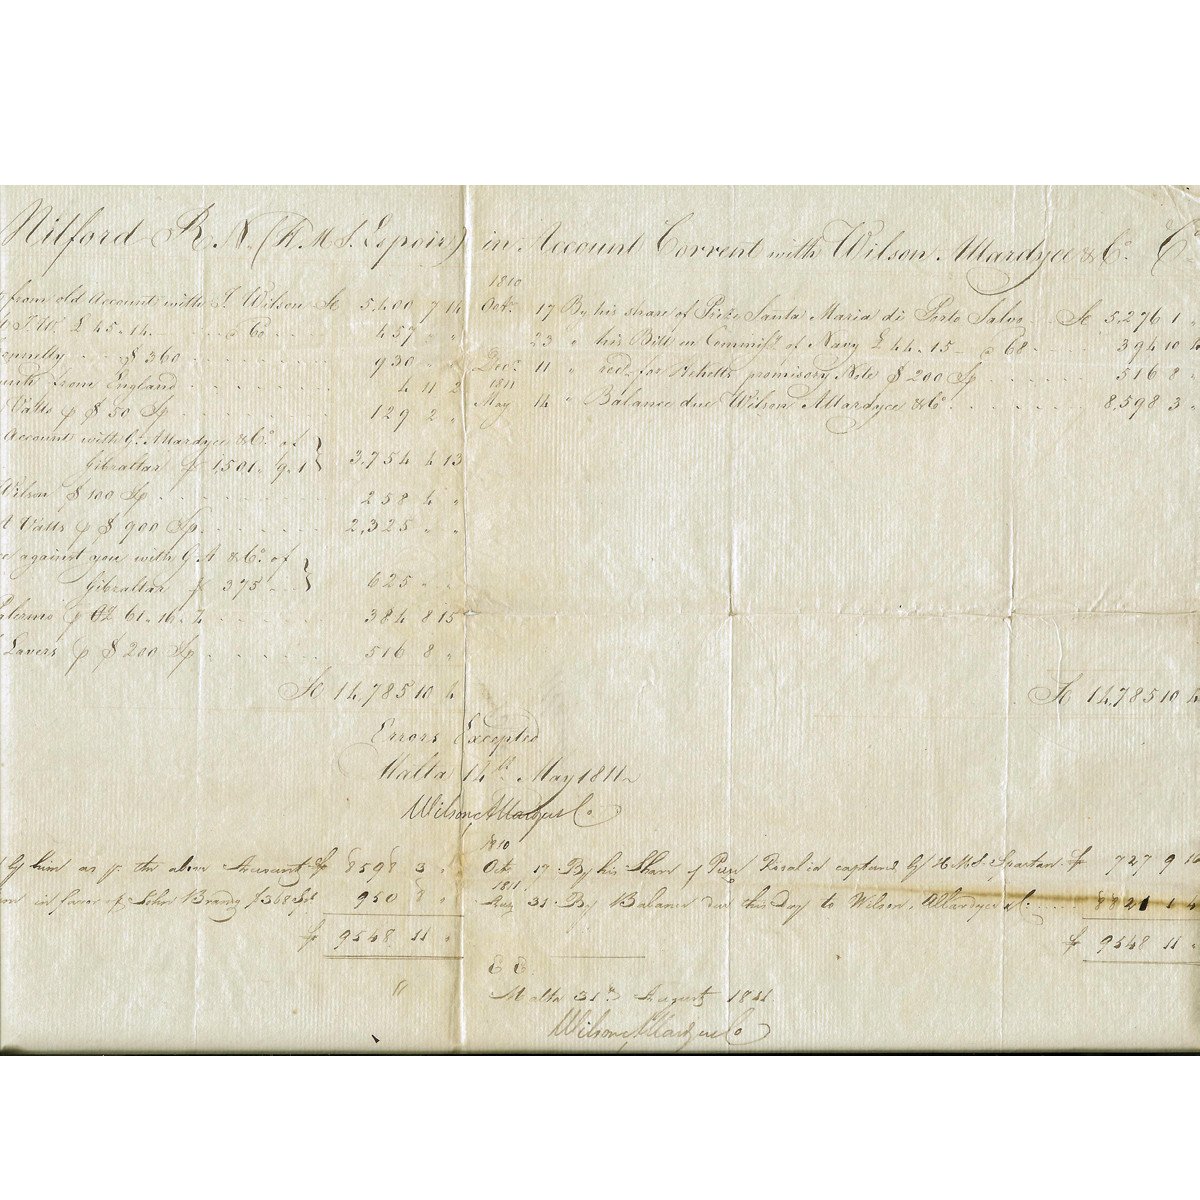 Mitford R.N. (H.M.S. Espoir) in Account Current with Wilson Allardyce & Co. Cr
from old Accounts with J. Wilson Sc 5,400 7 14
J. W. £ 45.14 @ 60 457 " "
$ 360 930 " "
from England 4 11 2
Watts p $ 50 Sp 129 2 "
Accounts with G. Allardyce & Co. of
Gibraltar 1,501. 3,754 4 13
Wilson $ 100 Sp 258 4 "
Watts p $ 900 Sp. 2,325 " "
against you with G A & Co. of
Gibraltar 375 625 " "
Palermo p Oz 61.16.4 384 8 15
Lavers p $ 200 Sp 516 8 "
Sc 14,785 10 4
1810
Octr. 17 By his share of Prize Santa Maria di Porto Salvo Sc 5,276 1
23 " his Bill on Commissrs. of Navy £ 44.15 @ 68 394 10
Decr. 11 " recd. for promisory Note $ 200 Sp 516 8
1811
May 14 " Balance due Wilson Allardyce & Co. 8,598 3
Sc 14,785 10 4
Errors Excepted
Malta 14th May 1811
Wilson, Allardyce & Co
by him as pr. the above Account 8598 3 "
in favor of John Brandy $ 368 Sp 950 8 "
9548 11 "
1810
Octr. 17 By his Share of captured by H.M.S. Spartan 727 9
1811
Aug 31 By Balance due this Day to Wilson, Allardyce & Co. 8821 1
9548 11 "
E E
Malta 31st August 1811
Wilson, Allardyce & Co